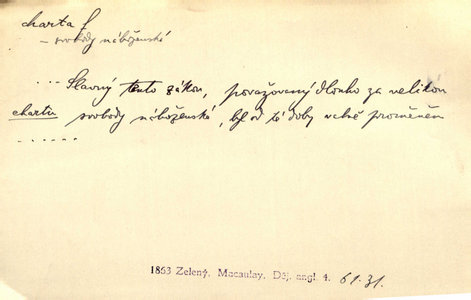 charta f
– svobody náboženské
... Slavný tento zákon, považovaný dlouho za velikou
chartu svobody náboženské, byl od té doby valně proměněn
......
1863 Zelený, Macaulay. Děj. angl. 4. 61.31.